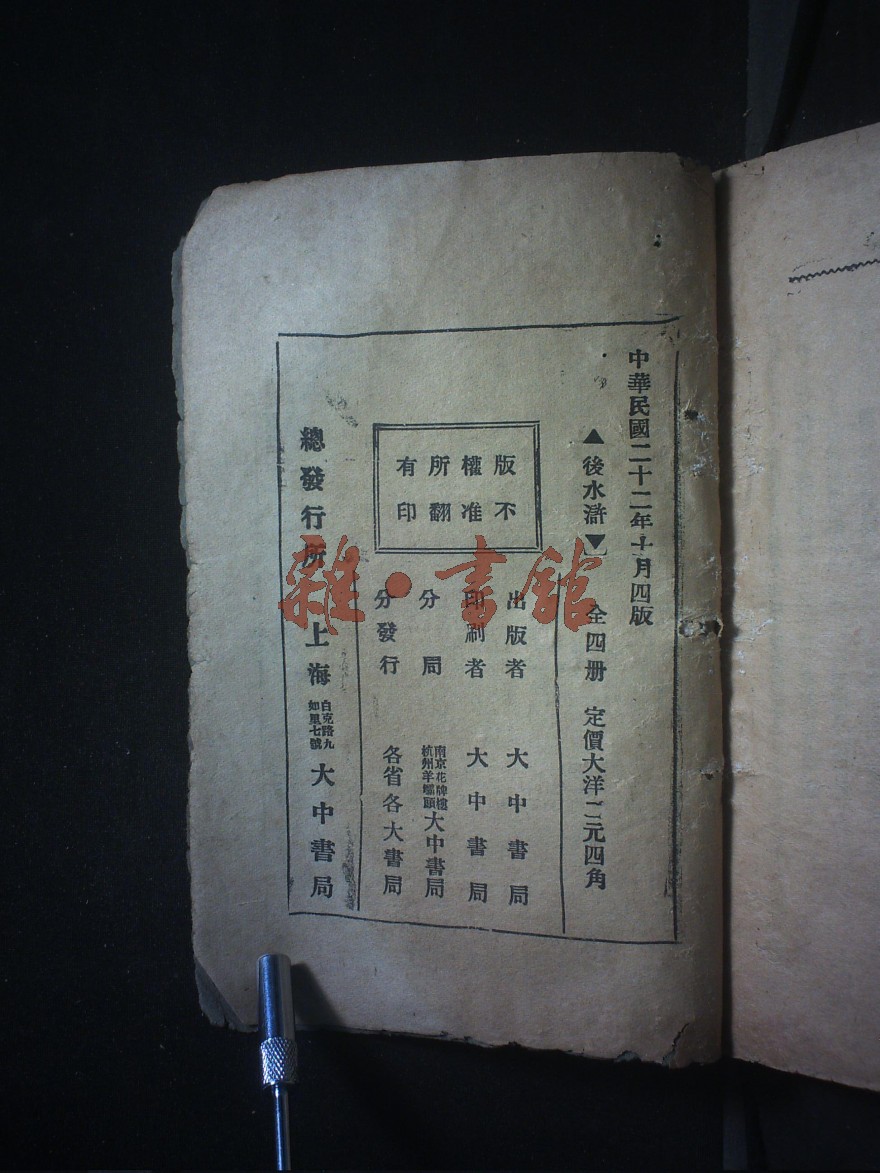 中華民國二十二年十月四版
▲後水滸▼ 全四册 定價大洋二元四角
版權所有
不准翻印
出版者 大中書局
印刷者 大中書局
分局 南京花牌樓 杭州羊壩頭 大中書局
分發行 各省各大書局
總發行所 上海 白克路九如里七號 大中書局
雜·書館